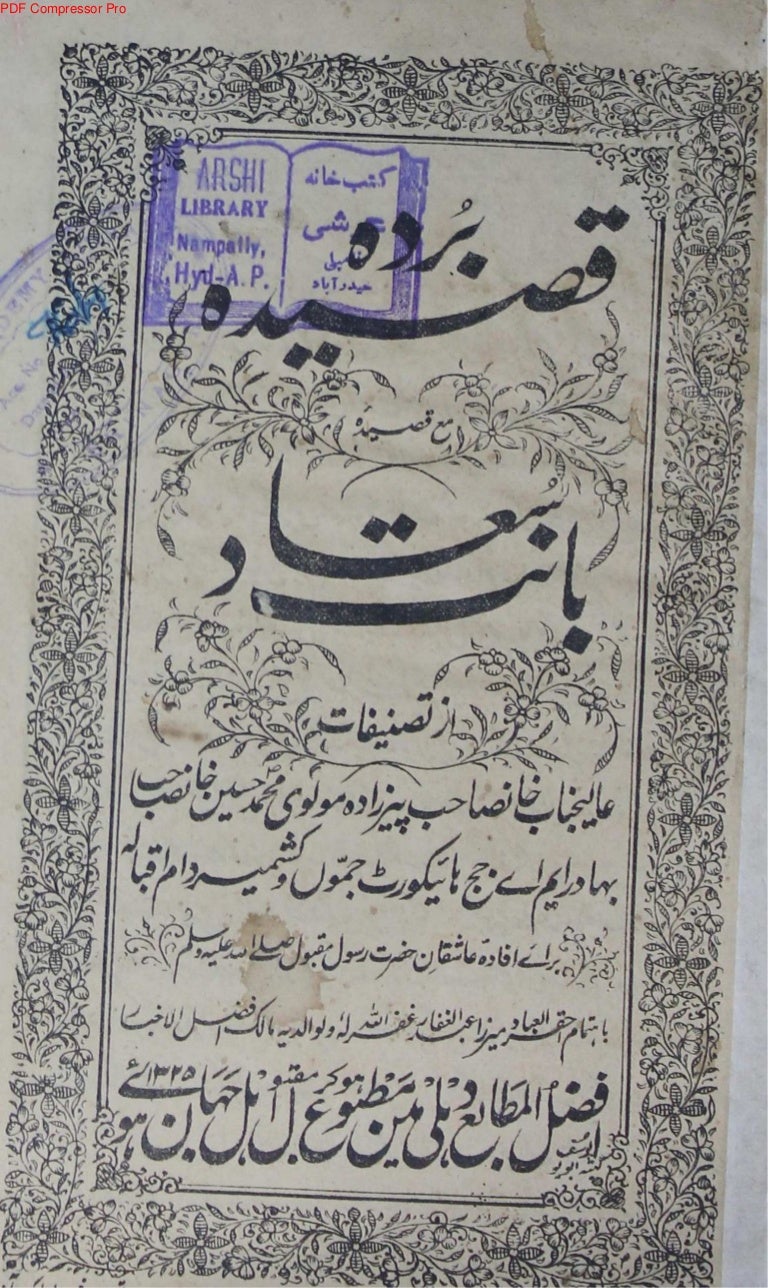 PDF Compressor Pro
ARSHI
LIBRARY
Nampally,
Hyd-A.P.
کتب خانہ
عرشی
نامپلی
حیدرآباد
قصیدہ بُردہ
مع قصیدۂ
بانت سُعاد
از تصنیفات
عالیجناب خانصاحب پیرزادہ مولوی محمد حسین خانصاحب
بہادر ایم اے جج ہائیکورٹ جموں وکشمیر دام اقبالہ
برائے افادۂ عاشقان حضرت رسول مقبول صلے اللہ علیہ وسلم
باہتمام احقر العباد میرزا عبدالغفار غفر اللہ لہٗ ولوالدیہ مالک افضل الاخبار
افضل المطابع دہلی میں مطبوع ہوکر مقبول اہل جہان ہو
۱۳۲۵